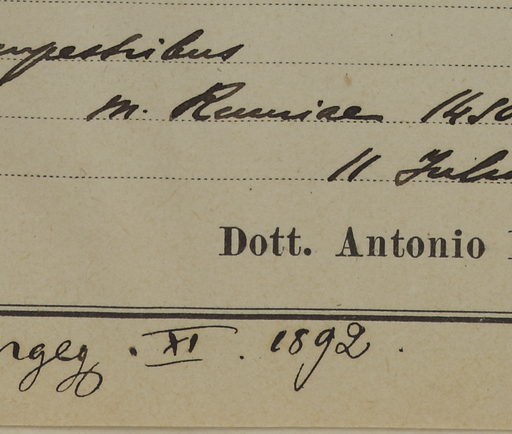 mpestribus
m. Rumiae 1450
11 Juli
Dott. Antonio
rgeg . XI . 1892 .